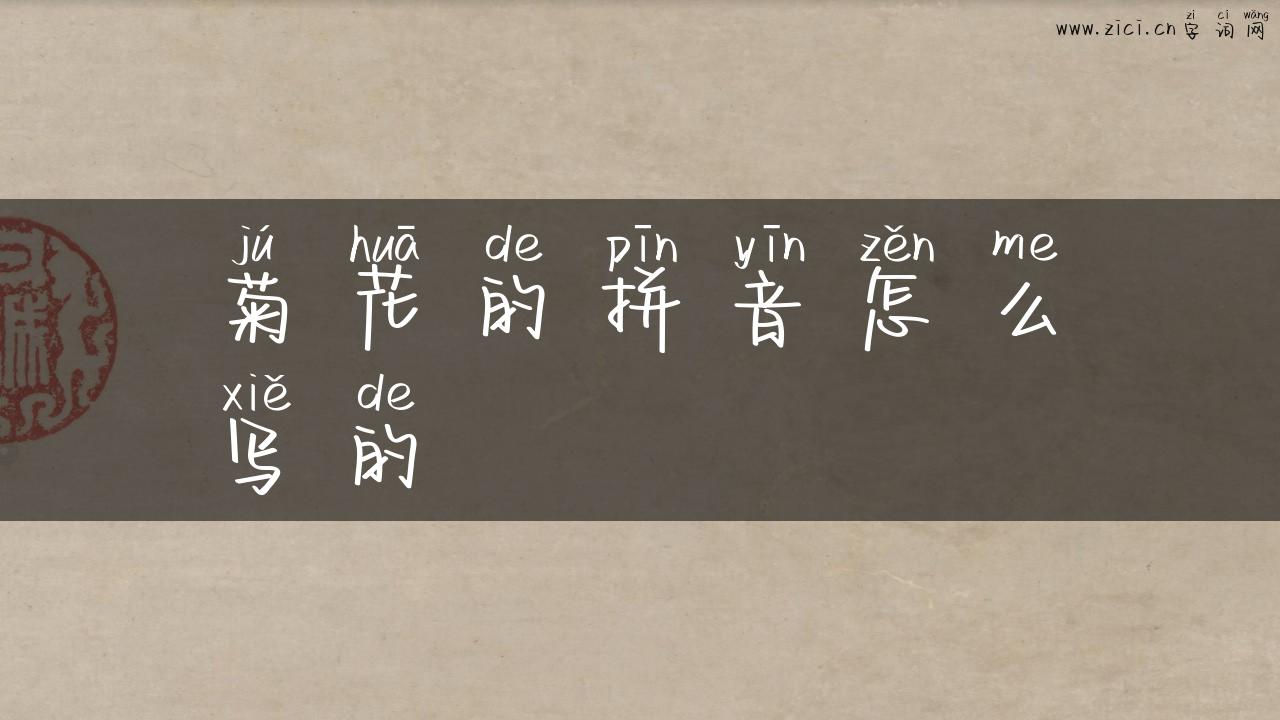 zì cí wǎng
www.zici.cn 字词网
jú huā de pīn yīn zěn me
菊花的拼音怎么
xiě de
写的